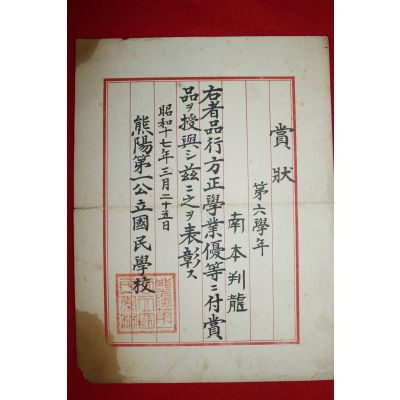 賞狀
第六學年
南本判龍
右者品行方正學業優等ニ付賞
品ヲ授與シ玆ニ之ヲ表彰ス
昭和十七年三月二十五日
熊陽第一公立國民學校